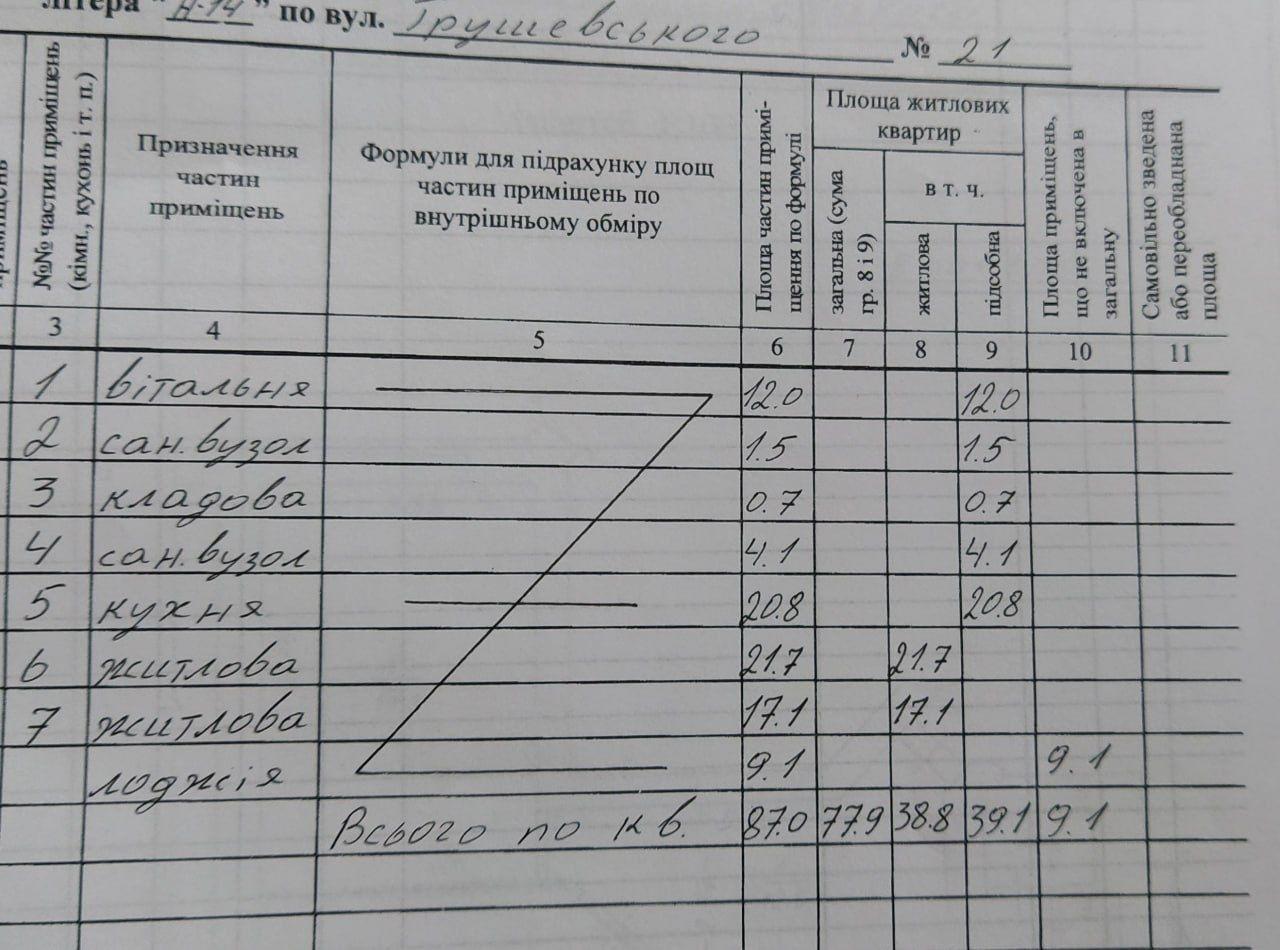 літера "А-14" по вул. Грушевського № 21
приміщень
№№ частин приміщень (кімн., кухонь і т. п.)
Призначення частин приміщень
Формули для підрахунку площ частин приміщень по внутрішньому обміру
Площа частин приміщення по формулі
Площа житлових квартир
загальна (сума гр. 8 і 9)
в т. ч.
житлова
підсобна
Площа приміщень, що не включена в загальну
Самовільно зведена або переобладнана площа
3 4 5 6 7 8 9 10 11
1 вітальня 12.0 12.0
2 сан. вузол 1.5 1.5
3 кладова 0.7 0.7
4 сан. вузол 4.1 4.1
5 кухня 20.8 20.8
6 житлова 21.7 21.7
7 житлова 17.1 17.1
лоджія 9.1 9.1
Всього по кв. 87.0 77.9 38.8 39.1 9.1